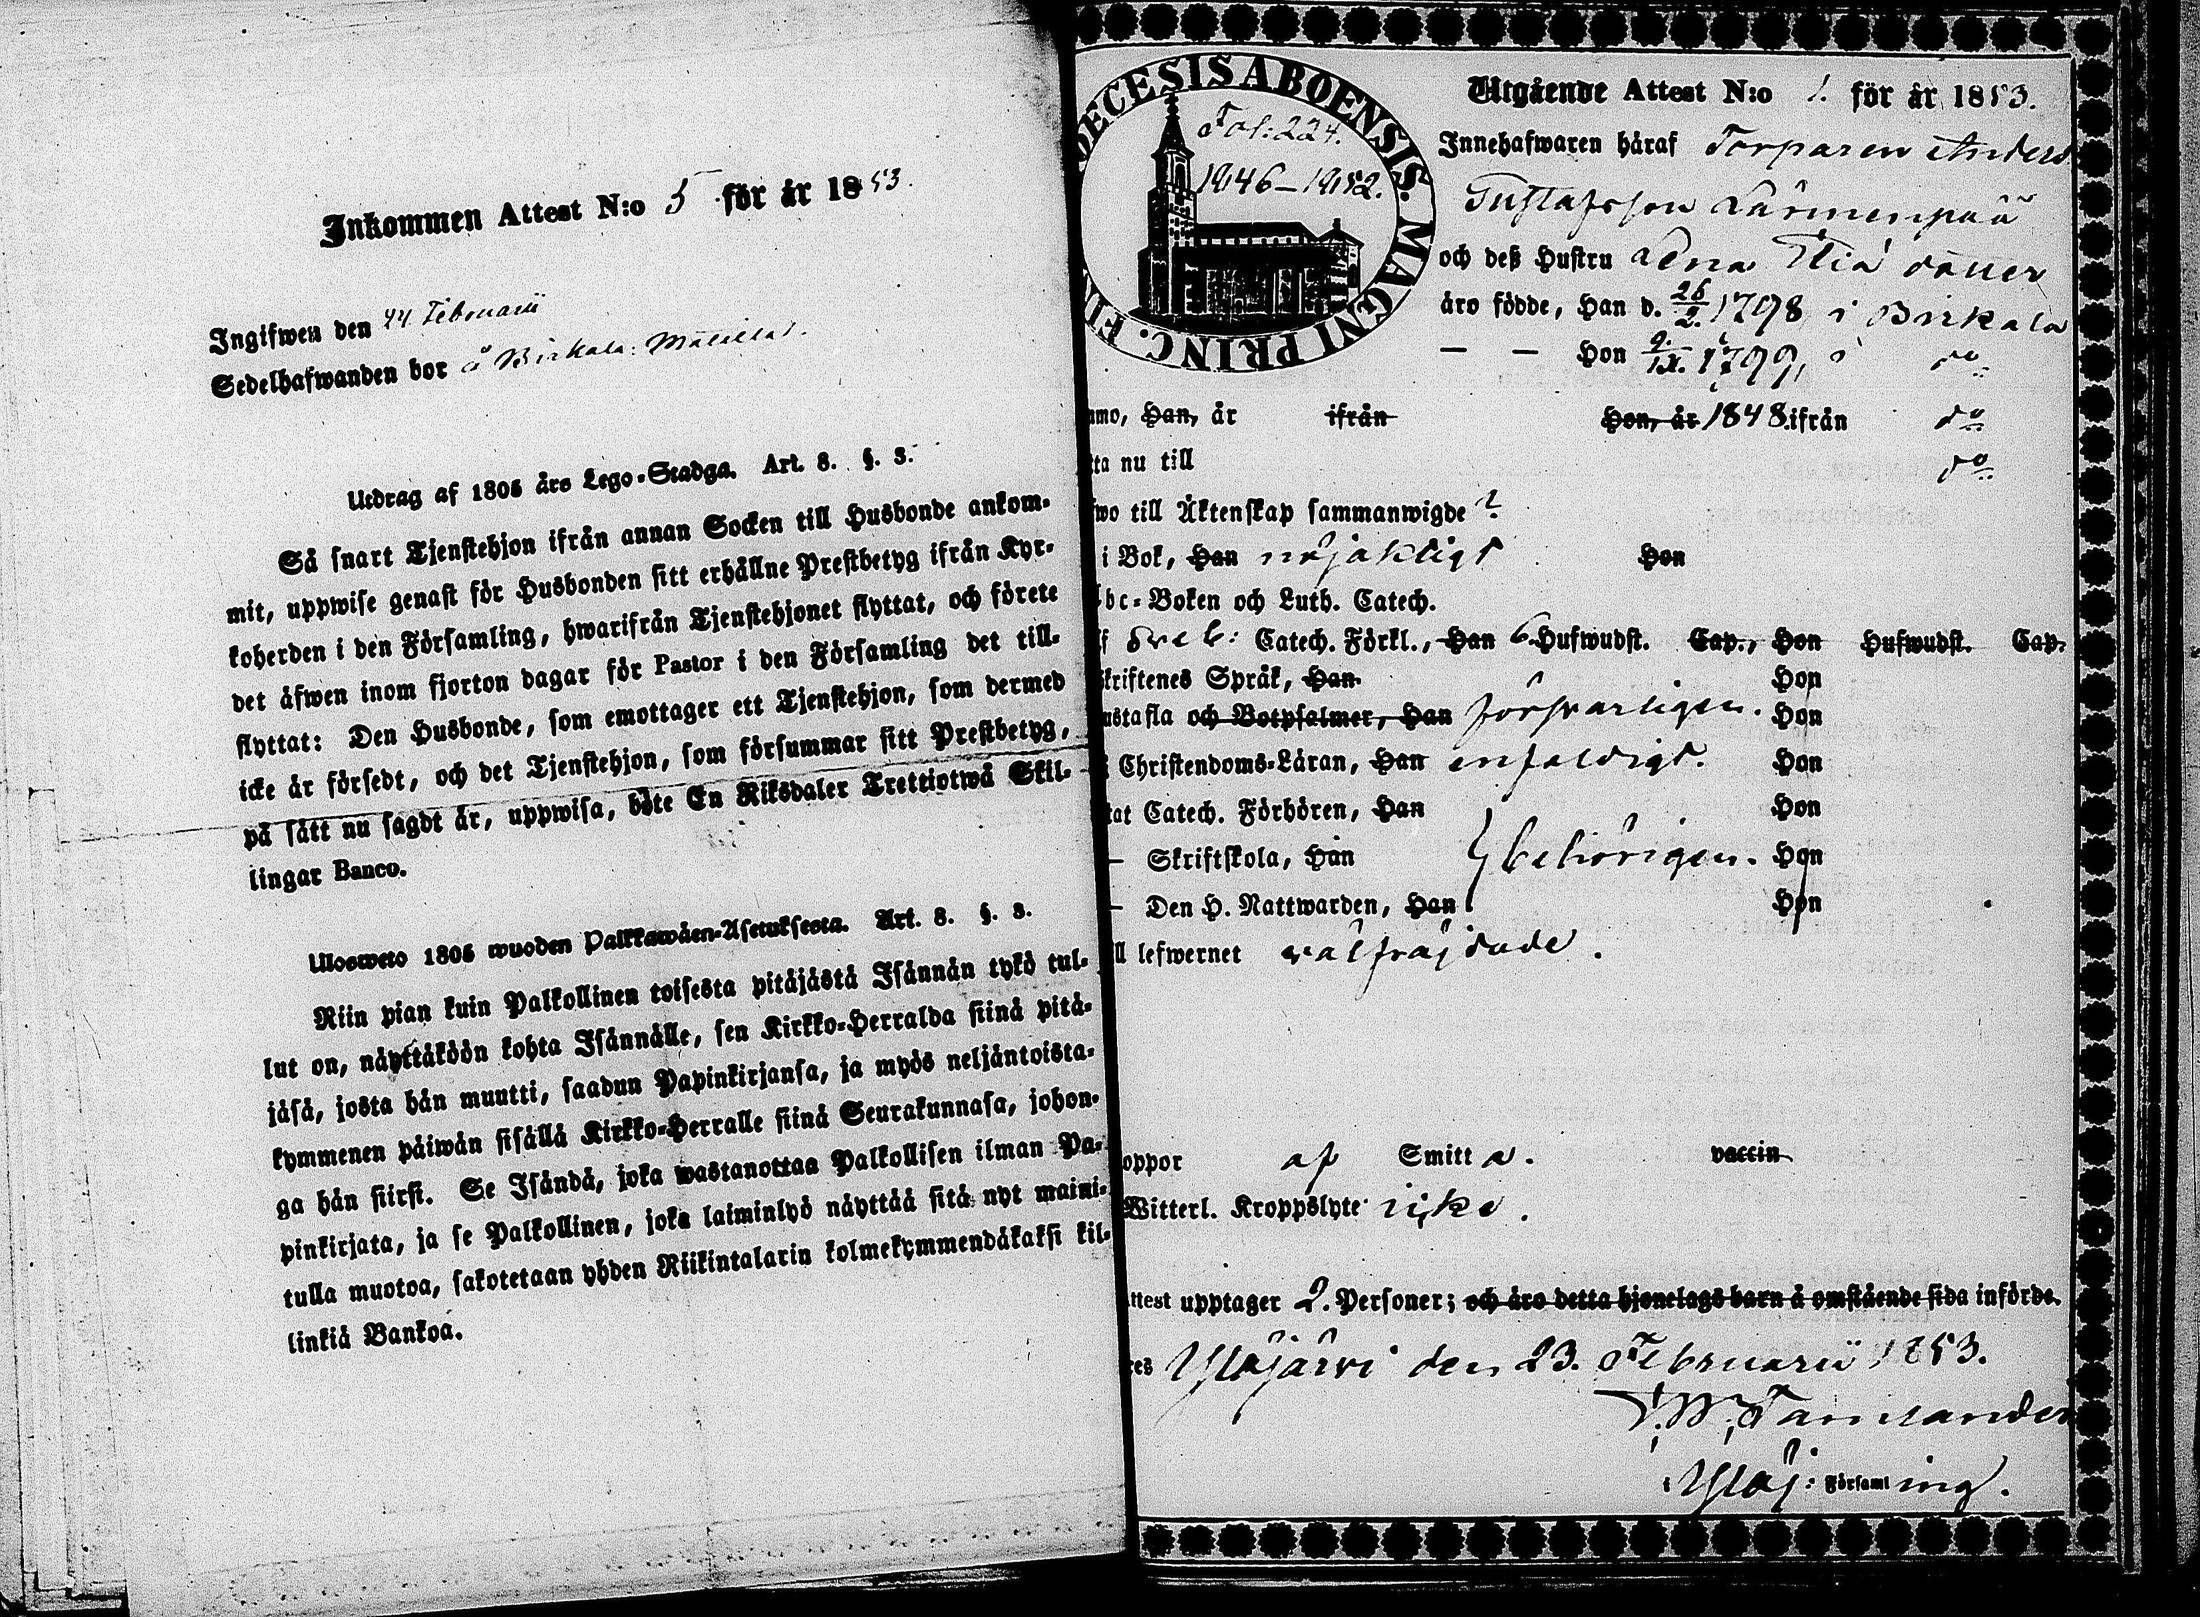 Inkommen Attest N:o 5 för år 1853.
Ingifwen den 24 Februarii
Sedelhafwanden bor å Birkala:
Utdrag af 1805 års Lego-Stadga. Art. 8. §. 3.
Så snart Tjenstehjon ifrån annan Socken till Husbonde ankom-
mit, uppwise genast för Husbonden sitt erhållne Prestbetyg ifrån Kyr-
koherden i den Församling, hwarifrån Tjenstehjonet flyttat, och förete
det äfwen inom fjorton dagar för Pastor i den Församling det till-
flyttat: Den Husbonde, som emottager ett Tjenstehjon, som dermed
icke är försedt, och det Tjenstehjon, som försummar sitt Prestbetyg,
på sätt nu sagdt är, uppwisa, böte En Riksdaler Trettiotwå Skil-
lingar Banco.
Ulosweto 1805 wuoden Palkkawäen-Asetuksesta. Art. 8. §. 3.
Niin pian kuin Palkollinen toisesta pitäjästä Isännän tykö tul-
lut on, näyttäköön kohta Isännälle, sen Kirkko-Herralda siinä pitä-
jäsä, josta hän muutti, saadun Papinkirjansa, ja myös neljäntoista-
kymmenen päiwän sisällä Kirkko-Herralle siinä Seurakunnasa, johon-
ga hän siirsi. Se Isändä, joka wastanottaa Palkollisen ilman Pa-
pinkirjata, ja se Palkollinen, joka laiminlyö näyttää sitä nyt maini-
tulla muotoa, sakotetaan yhden Riikintalarin kolmekymmendäkaksi kil-
linkiä Bankoa.
DECESIS ABOENSIS. MAGNI PRINC. FIN
Fol: 224.
1846–1852.
Utgående Attest N:o 1. för år 1853.
Innehafwaren häraf Torparen Anders
Gustafsson
och deß Hustru Lena
äro födde, Han d. 26/2. 1798 i Birkala
— — Hon 9./IX. 1799, i do
mmo, Han, år ifrån Hon, år 1848. ifrån do
tta nu till do
wo till Äktenskap sammanwigde ?
i Bok, Han nöjaktigt Hon
bc-Boken och Luth. Catech.
f Sveb: Catech. Förkl., Han 6. Hufwudst. Cap., Hon Hufwudst. Cap.
kriftenes Språk, Han Hon
ustafla och Botpsalmer, Han försvarligen. Hon
Christendoms-Läran, Han enfaldigt. Hon
tat Catech. Förhören, Han Hon
— Skriftskola, Han behörigen. Hon
— Den H. Nattwarden, Han Hon
ll lefwernet välfräjdade.
oppor af Smitta. vaccin
Witterl. Kroppslyte icke.
ttest upptager 2. Personer; och äro detta hjonelags barn å omstående sida införde.
res Ylöjärvi den 23. Februarii 1853.
Ylöj: Församling.